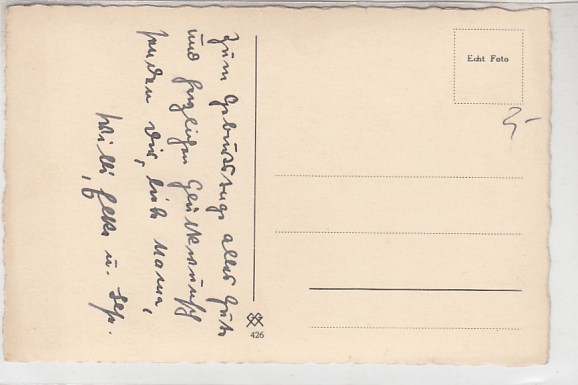 Zum Geburtstage alles Gute
und herzlichen Glückwunsch
senden Dir, liebe Mama,
Willi, u. Sepp.
Echt Foto
2,-
426